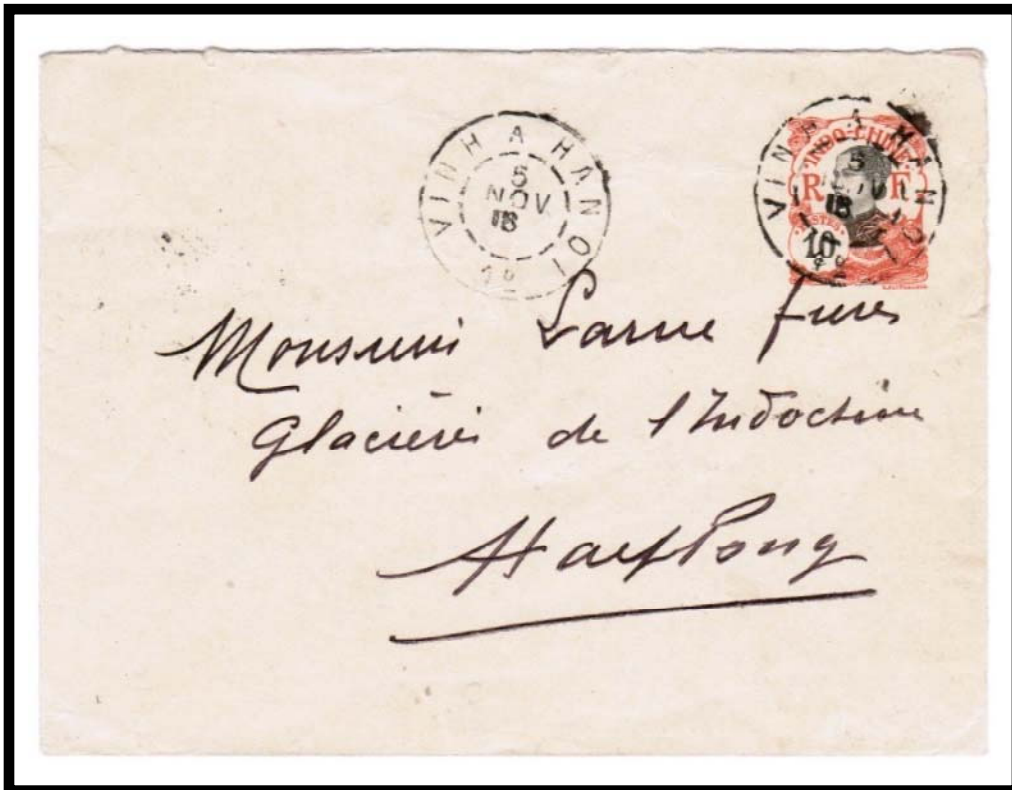 VINH A HANOI
5
NOV.
18
1º
VINH A HANOI
5
NOV
18
INDO-CHINE
R F
POSTES
10
Monsieur Larue frères
Glacières de l'Indochine
Haiphong